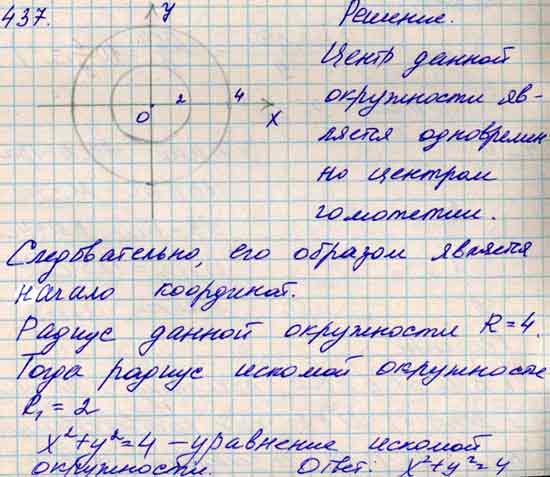 437.
y
Решение.
Центр данной
окружности яв-
2
4
ляется одновремен
0
x
но центром
гомотетии.
Следовательно, его образом является
начало координат.
Радиус данной окружности R=4.
Тогда радиус искомой окружности
R₁=2
x²+y²=4 – уравнение искомой
окружности. Ответ: x²+y²=4